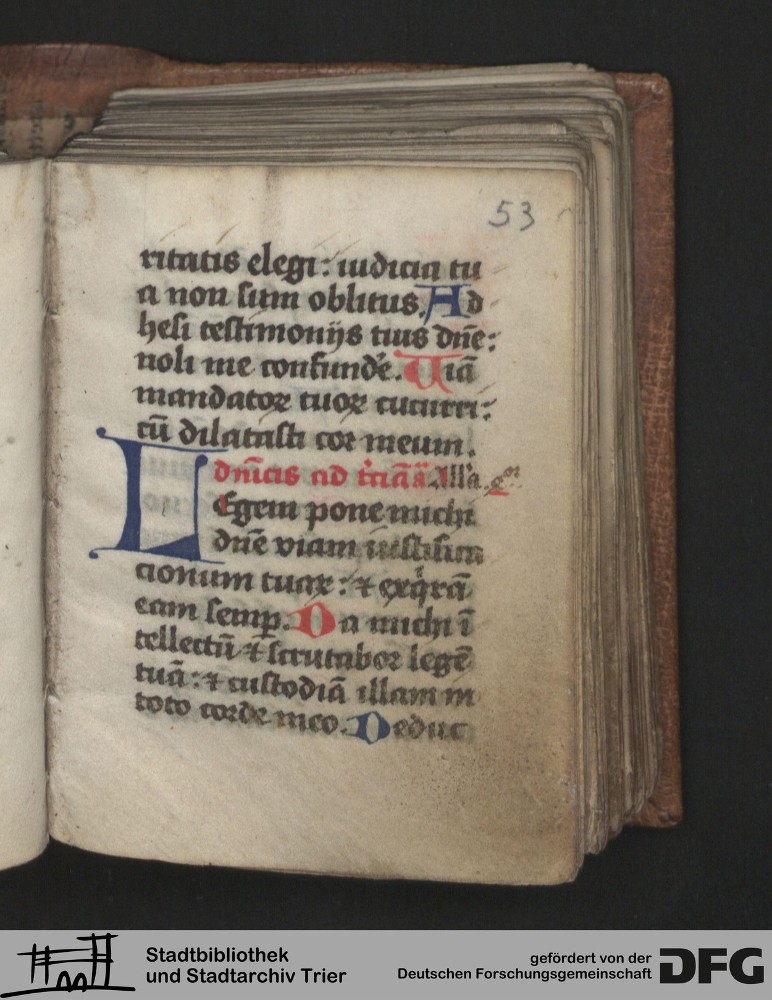 53
ritatis elegi: iudicia tu
a non sum oblitus. Ad
hesi testimonijs tuis dn̄e:
noli me confundē. Uiā
mandatoꝝ tuoꝝ cucurri:
cū dilatasti cor meum.
dn̄icis ad t̓ciā añ Alla.
Legem pone michi
dn̄e viam iustifica
cionum tuaꝝ: ⁊ exq̓rā
eam semꝑ. Da michi ī
tellectū ⁊ scrutabor legē
tuā: ⁊ custodiā illam in
toto corde meo. Deduc
Stadtbibliothek
und Stadtarchiv Trier
gefördert von der
Deutschen Forschungsgemeinschaft
DFG